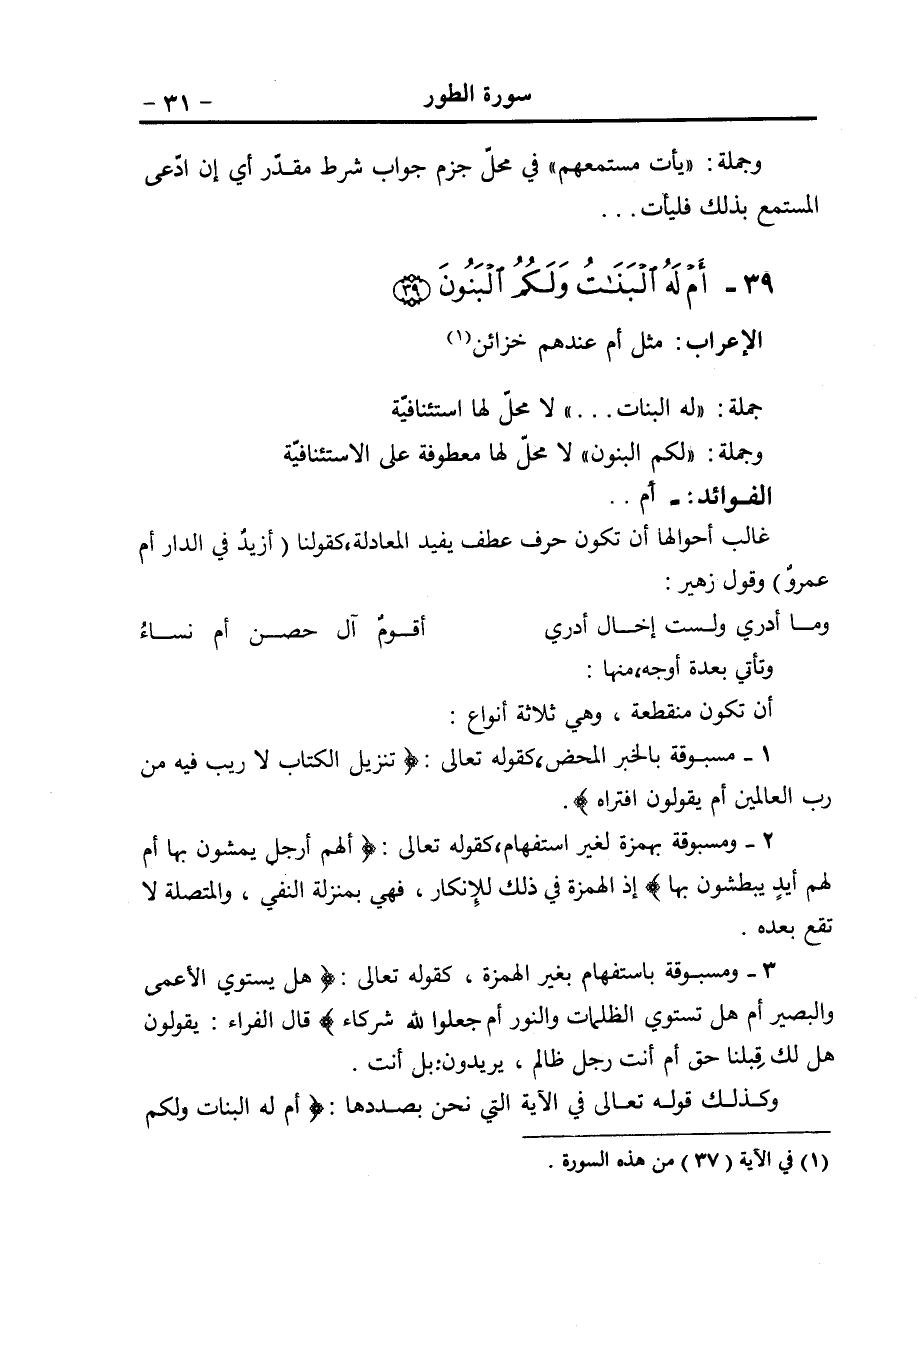 سورة الطور - ٣١ -
وجملة: «يأت مستمعهم» في محلّ جزم جواب شرط مقـدّر أي إن ادّعى
المستمع بذلك فليأت...
٣٩ - أَمْ لَهُ ٱلْبَنَٰتُ وَلَكُمُ ٱلْبَنُونَ ﴿٣٩﴾
الإعراب: مثل أم عندهم خزائن(١)
جملة: «له البنات...» لا محلّ لها استئنافيّة
وجملة: «لكم البنون» لا محلّ لها معطوفة على الاستئنافيّة
الفـوائد: ـ أَم . .
غالب أحوالها أن تكون حرف عطف يفيد المعادلة، كقولنا ( أزيدٌ في الدار أم
عمروٌ ) وقول زهير :
ومــا أدري ولــست إخــال أدري أقــومٌ آل حصــن أم نســاءُ
وتأتي بعدة أوجه، منها :
أن تكون منقطعة ، وهي ثلاثة أنواع :
١ ـ مسبـوقة بالخبر المحض، كقوله تعالى : ﴿ تنزيل الكتاب لا ريب فيه من
رب العالمين أم يقولون افتراه ﴾ .
٢ ـ ومسبوقة بهمزة لغير استفهام، كقوله تعالى : ﴿ ألهم أرجل يمشون بها أم
لهم أيدٍ يبطشون بها ﴾ إذ الهمزة في ذلك للإنكار ، فهي بمنزلة النفي ، والمتصلة لا
تقع بعده .
٣ ـ ومسبـوقة باستفهام بغير الهمزة ، كقوله تعالى : ﴿ هل يستوي الأعمى
والبصير أم هل تستوي الظلمات والنور أم جعلوا لله شركاء ﴾ قال الفراء : يقولون
هل لك قِبلنا حق أم أنت رجل ظالم ، يريدون: بل أنت .
وكـذلـك قولـه تعـالى في الآية التي نحن بصـددها : ﴿ أم له البنات ولكم
(١) في الآية ( ٣٧ ) من هذه السورة .